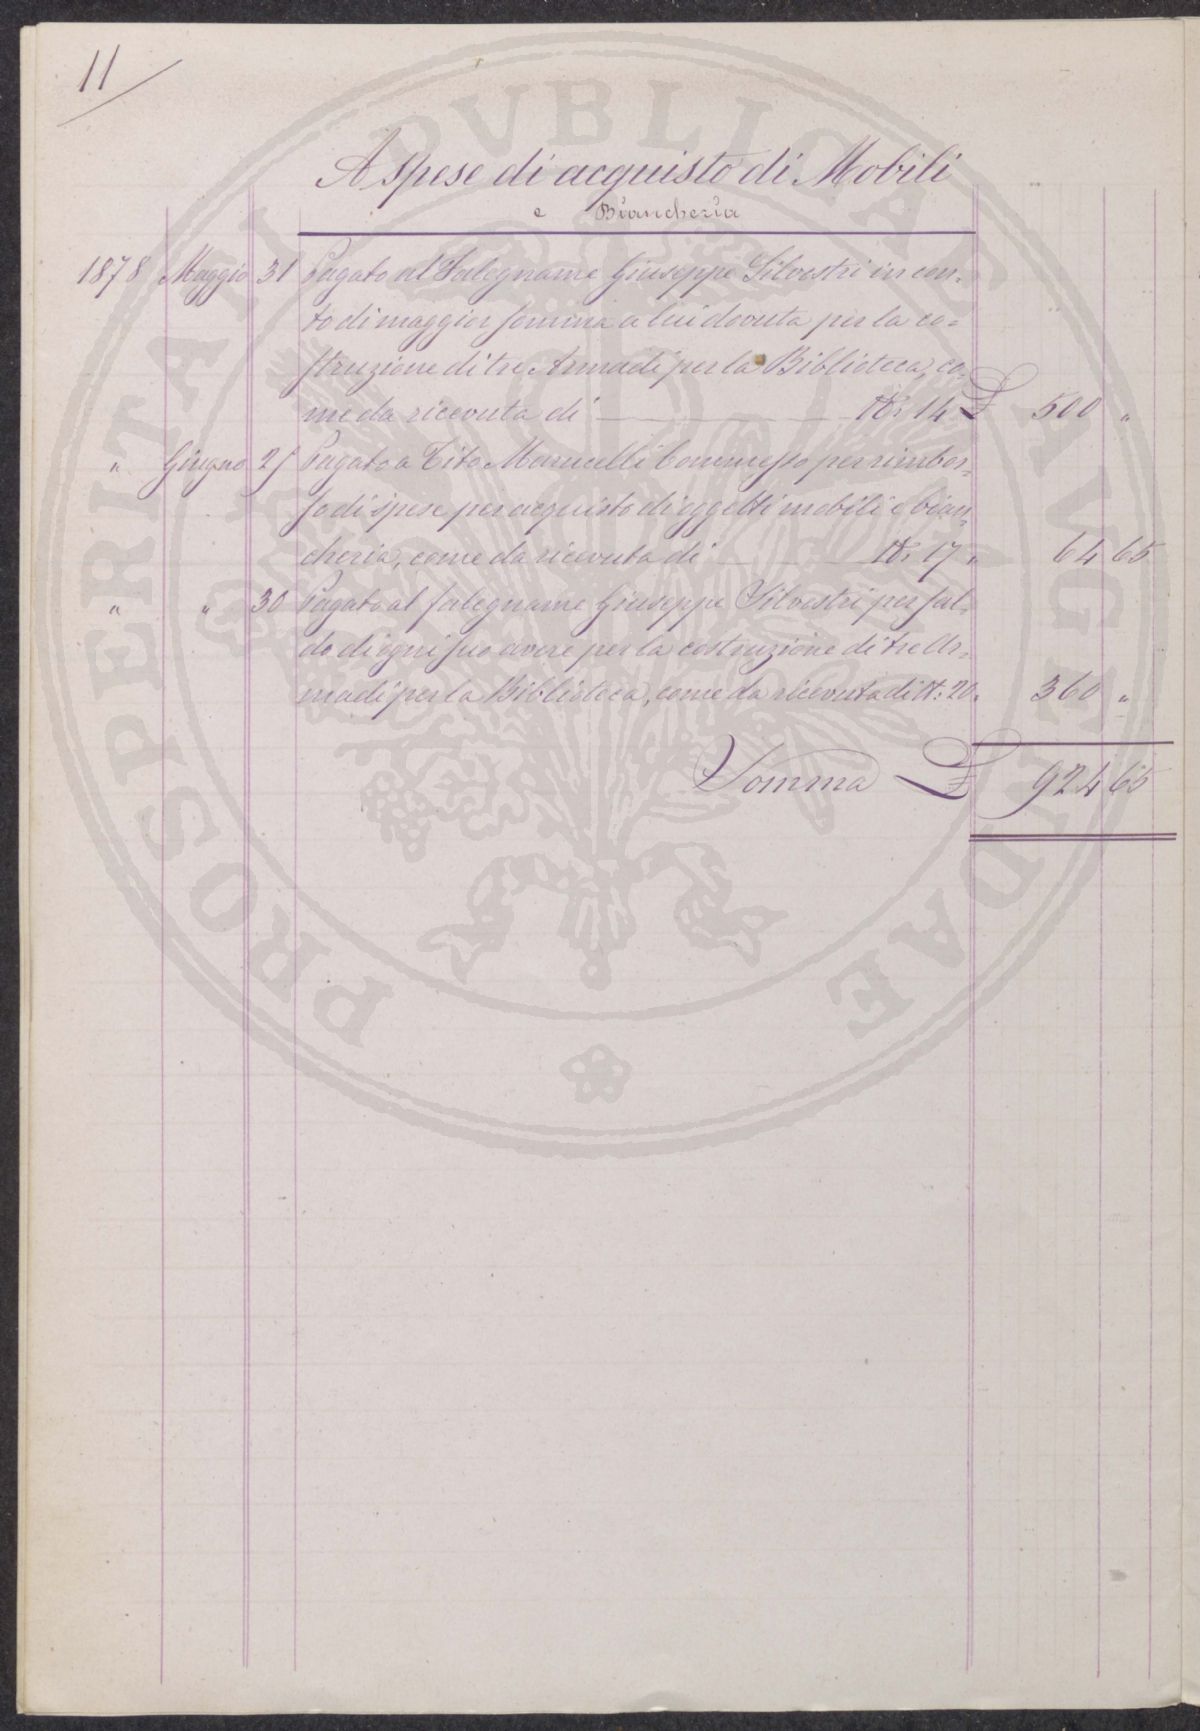 11
A Spese di acquisto di Mobili
e Biancheria
1878 Maggio 31 Pagato al Falegname Giuseppe Silvestri in con-
to di maggior somma a lui dovuta per la co=
struzione di tre Armadi per la Biblioteca, co-
me da ricevuta di N: 14 £ 500 "
" Giugno 25 Pagato a Tito Marucelli Commesso per rimbor=
so di spese per acquisto di oggetti mobili e bian=
cheria, come da ricevuta di N: 17 " 64 65
" " 30 Pagato al falegname Giuseppe Silvestri per sal=
do di ogni suo avere per la costruzione di tre Ar=
madi per la Biblioteca, come da ricevuta di N: 20 " 360 "
Somma £ 924 65
PROSPERITATI PVBLICAE AVGENDAE